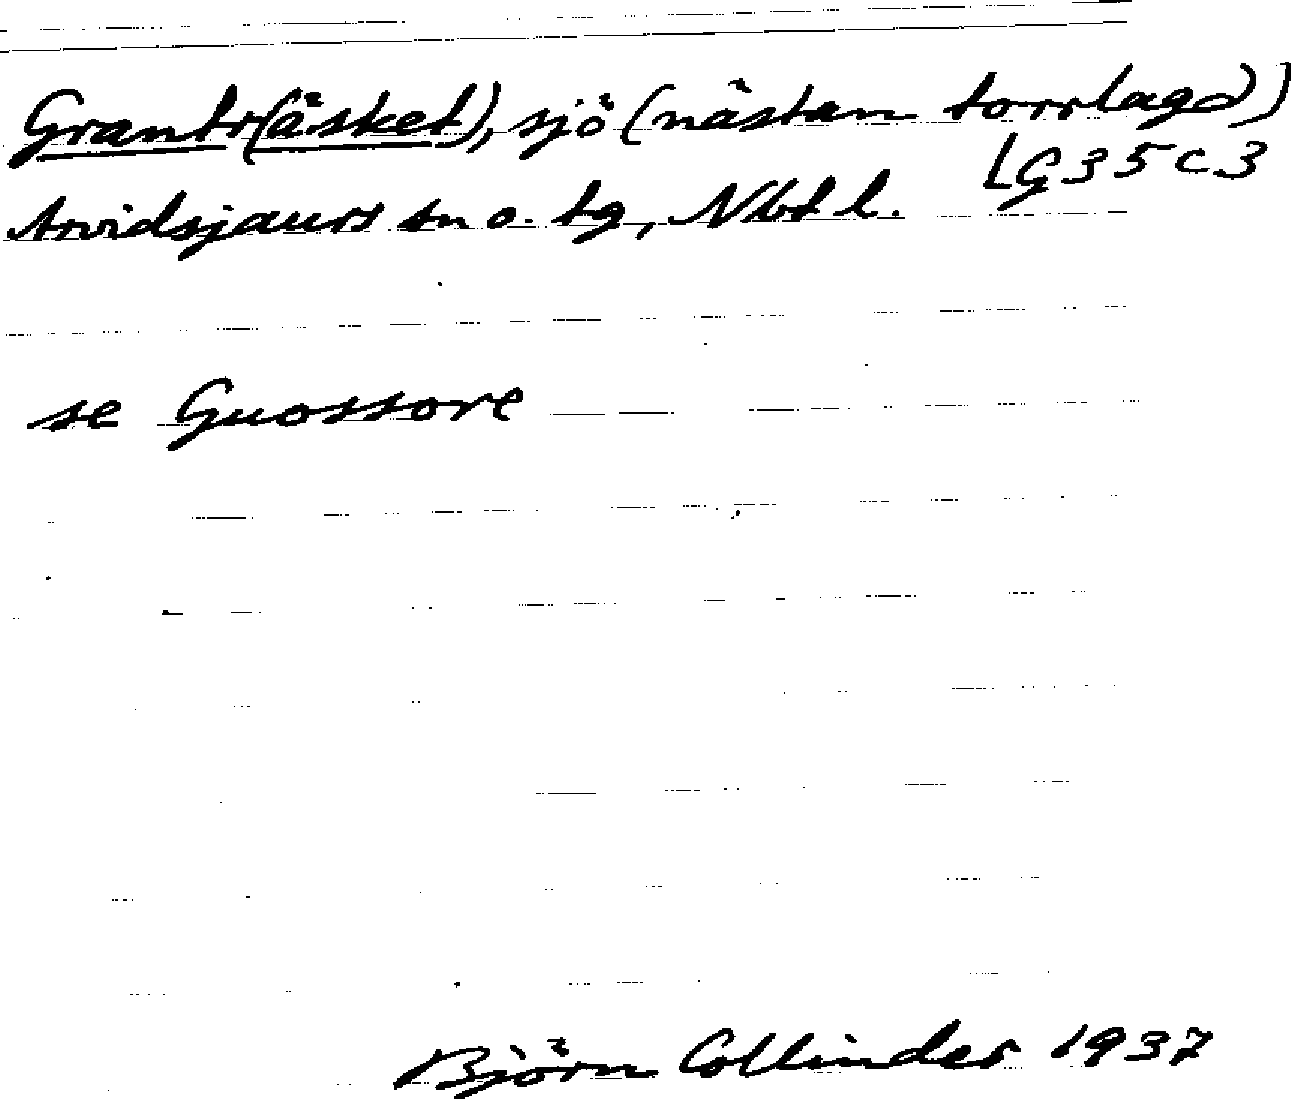 Grantr(äsket), sjö (nästan torrlagd))
LG35c3
Arvidsjaurs sn o. tg, Nbt l.
se Guossore
Björn Collinder 1937